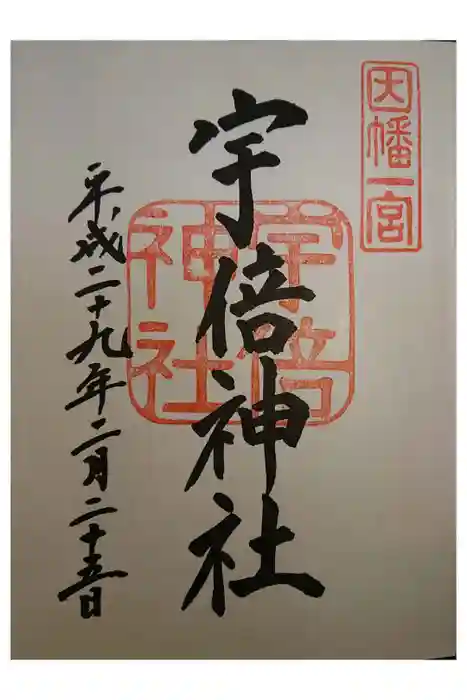 因幡一宮
宇倍神社
宇倍
神社
平成二十九年二月二十五日